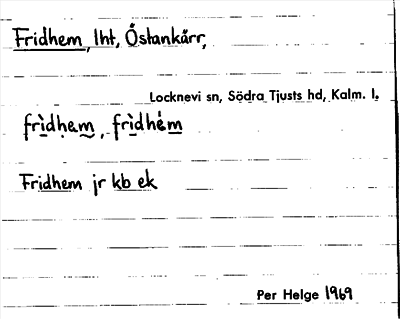 Fridhem, lht, Östankärr,
Locknevi sn, Södra Tjusts hd, Kalm. l.
frìdhem, frìdhém
Fridhem jr kb ek
Per Helge 1969